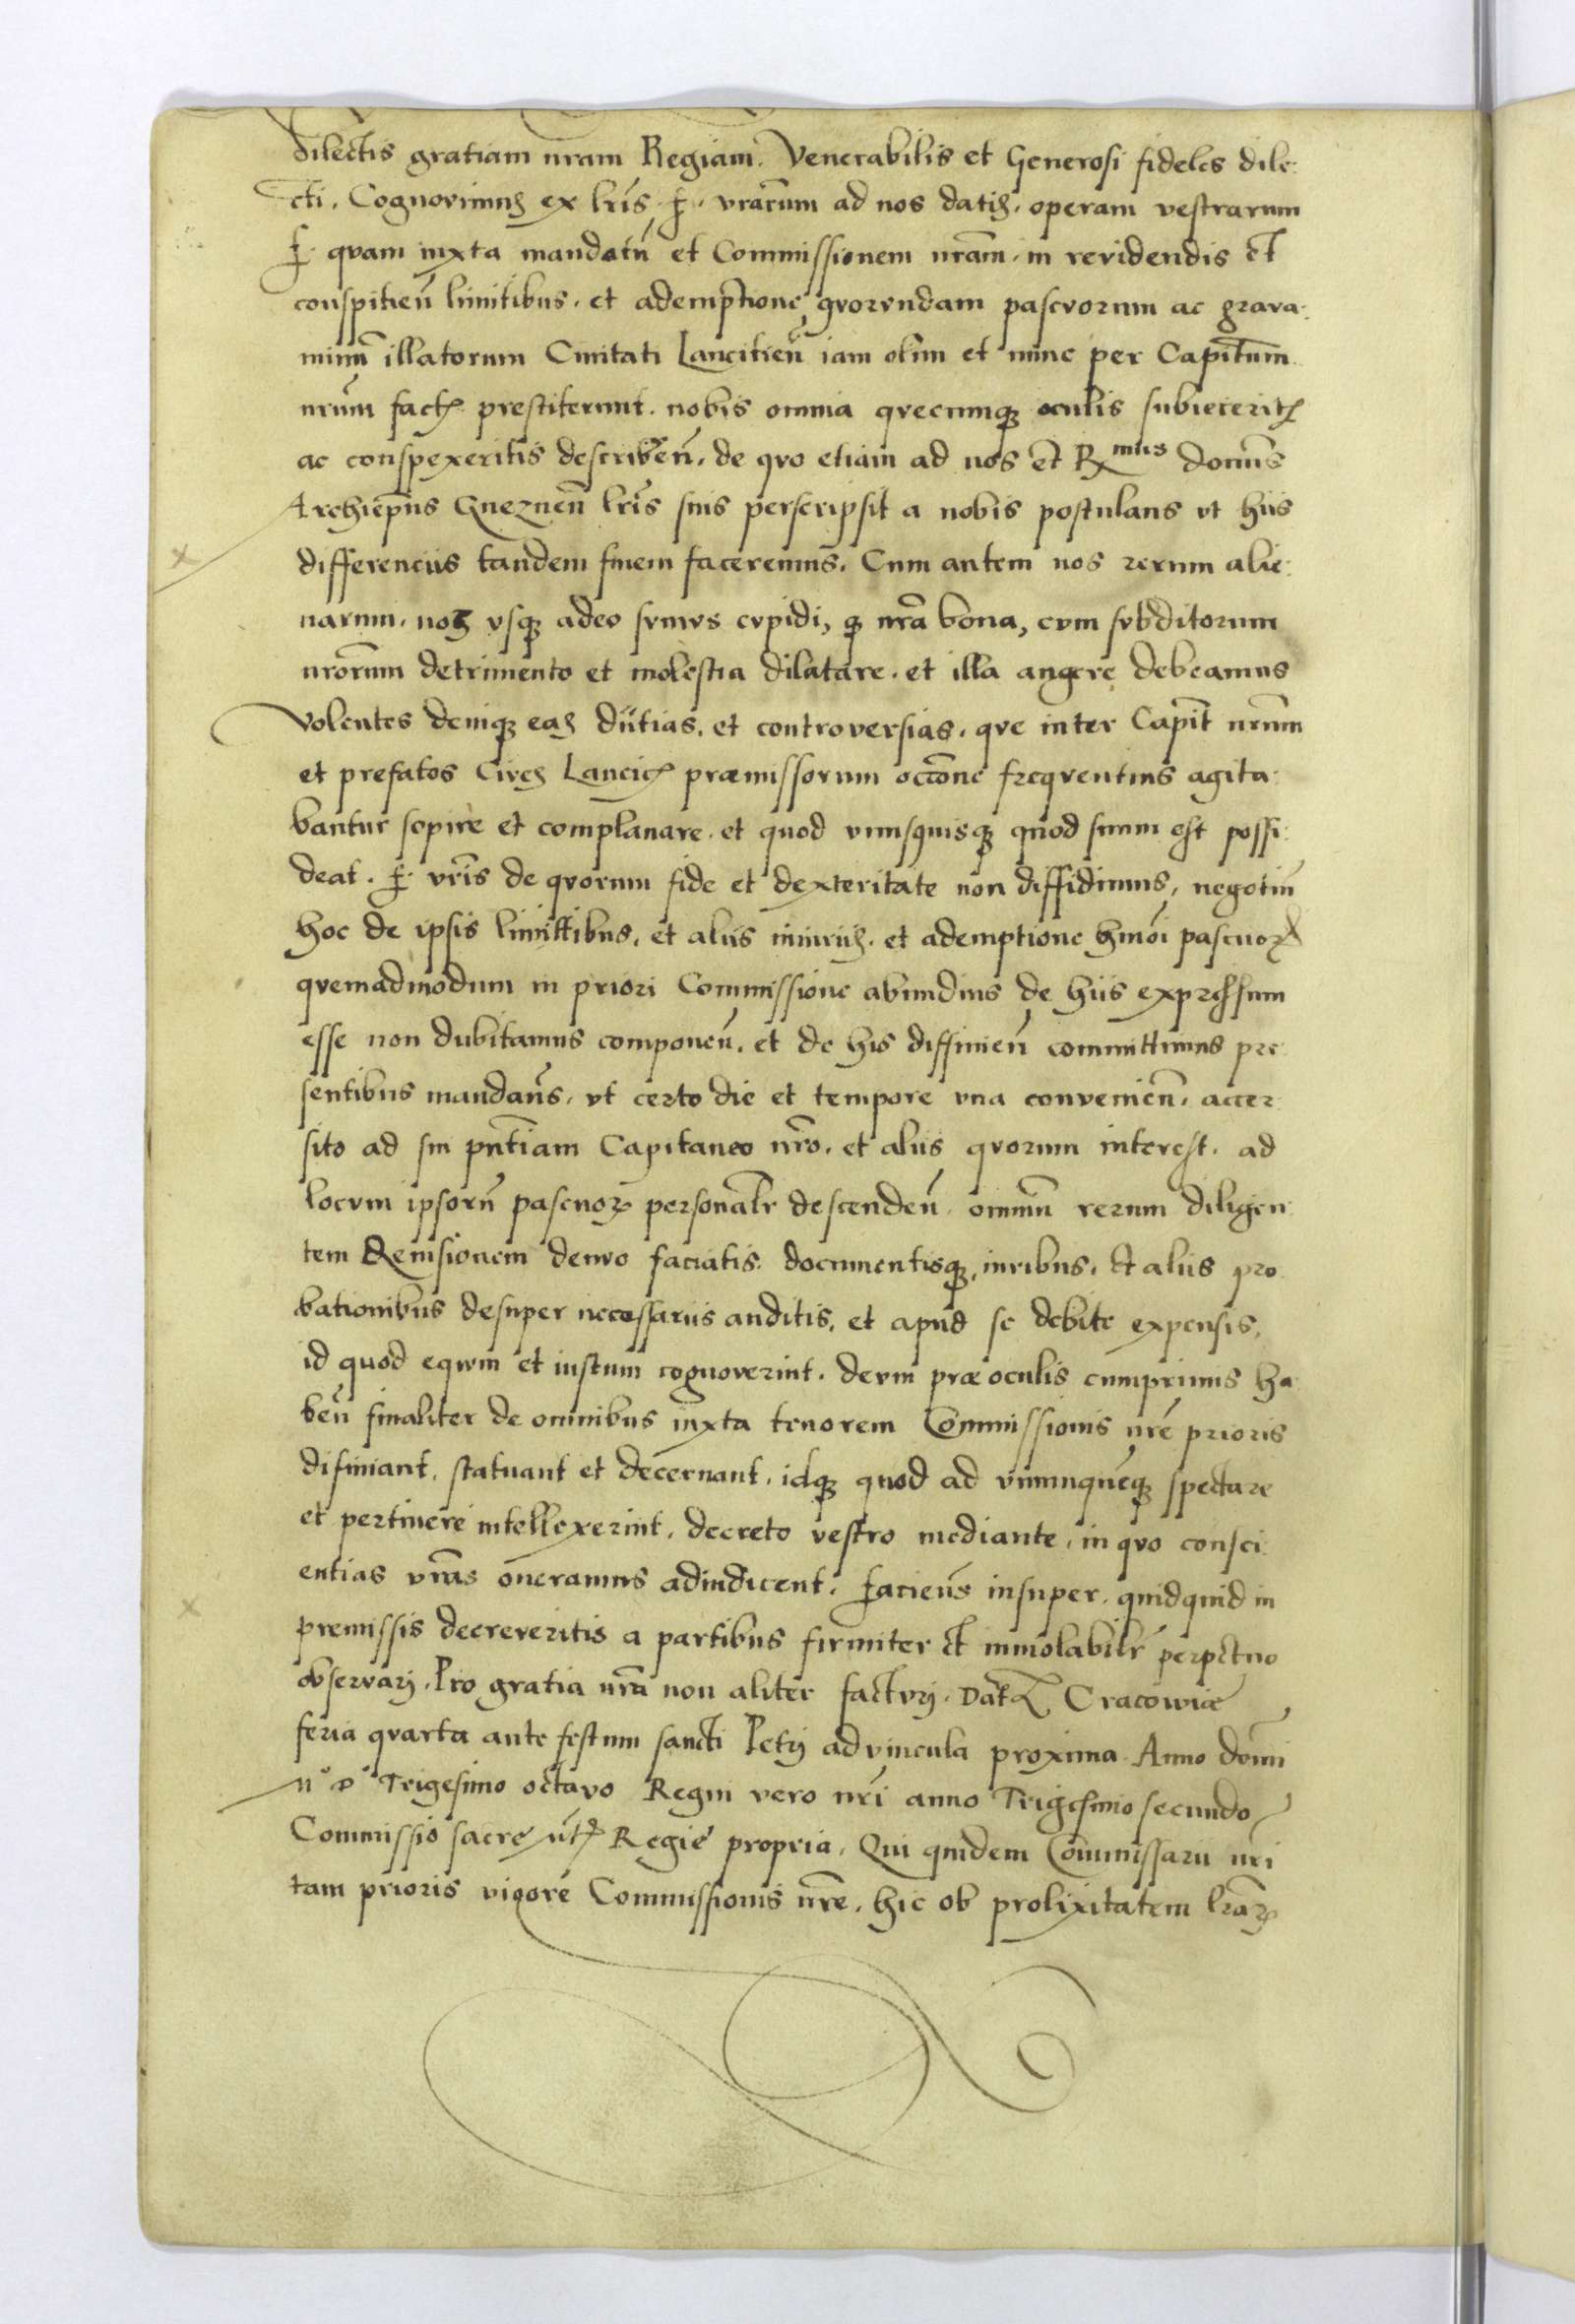 dilectis gratiam nram Regiam. Venerabilis et Generosi fideles dile:
cti. Cognovimus ex lris f. vrarum ad nos datis. operam vestrarum
f. quam iuxta mandatu et Commissionem nram. in revidendis et
conspitien limitibus. et ademptione quorundam pascvorum ac grava:
minu illatorum Civitati Lancitien iam olim et nunc per Capitum
nrum fact prestiterunt. nobis omnia quecunq oculis subieceritis
ac conspexeritis describen. de quo etiam ad nos et Rmus domns
Archiepus Gneznen lris suis perscripsit a nobis postulans vt hiis
differenciis tandem finem faceremus. Cum autem nos rerum alie:
narum. non vsq adeo sumus cvpidi, q nra bona, cvm svbditorum
nrorum detrimento et molestia dilatare. et illa augere debeamus
Volentes deniq eas dntias. et controversias. qve inter Capit nrum
et prefatos Cives Lancic præmissorum occone freqventius agita:
bantur sopire et complanare. et quod vnusquisq quod suum est possi:
deat. f. vris de qvorum fide et dexteritate non diffidimus, negotiu
hoc de ipsis limittibus. et aliis iniuriis. et ademptione hmoi pascuor
qvemadmodum in priori Commissione abundius de hiis expressum
esse non dubitamus componen. et de his diffinien committimus pre
sentibus mandans. vt certo die et tempore vna convenien. accer
sito ad sui pntiam Capitaneo nro. et aliis qvorum interest. ad
locvm ipsoru pascuor personalr descenden. omniu rerum diligen
tem Revisionem denvo faciatis. documentisq, iuribus. et aliis pro
bationibus desuper necessariis auditis, et apud se debite expensis,
id quod eqvvm et iustum cognoverint. devm præ oculis cumprimis ha
ben finaliter de omnibus iuxta tenorem Commissionis nre prioris
difiniant. statuant et decernant. idq quod ad vnumquenq spectare
et pertinere intellexerint. decreto vestro mediante, in qvo consci:
entias vras oneramus adiudicent. faciens insuper. quidquid in
premissis decreveritis a partibus firmiter et inviolabilr perpetuo
observarj. Pro gratia nra non aliter factvrj. Dat Cracowiæ
feria qvarta ante festum sancti Petrj ad vincula proxima. Anno domi
M° D° Trigesimo octavo Regni vero nri anno Trigesimo secundo
Commissio sacre mt Regie propria. Qui quidem Commissarii nri
tam prioris vigore Commissionis nre. hic ob prolixitatem lrar